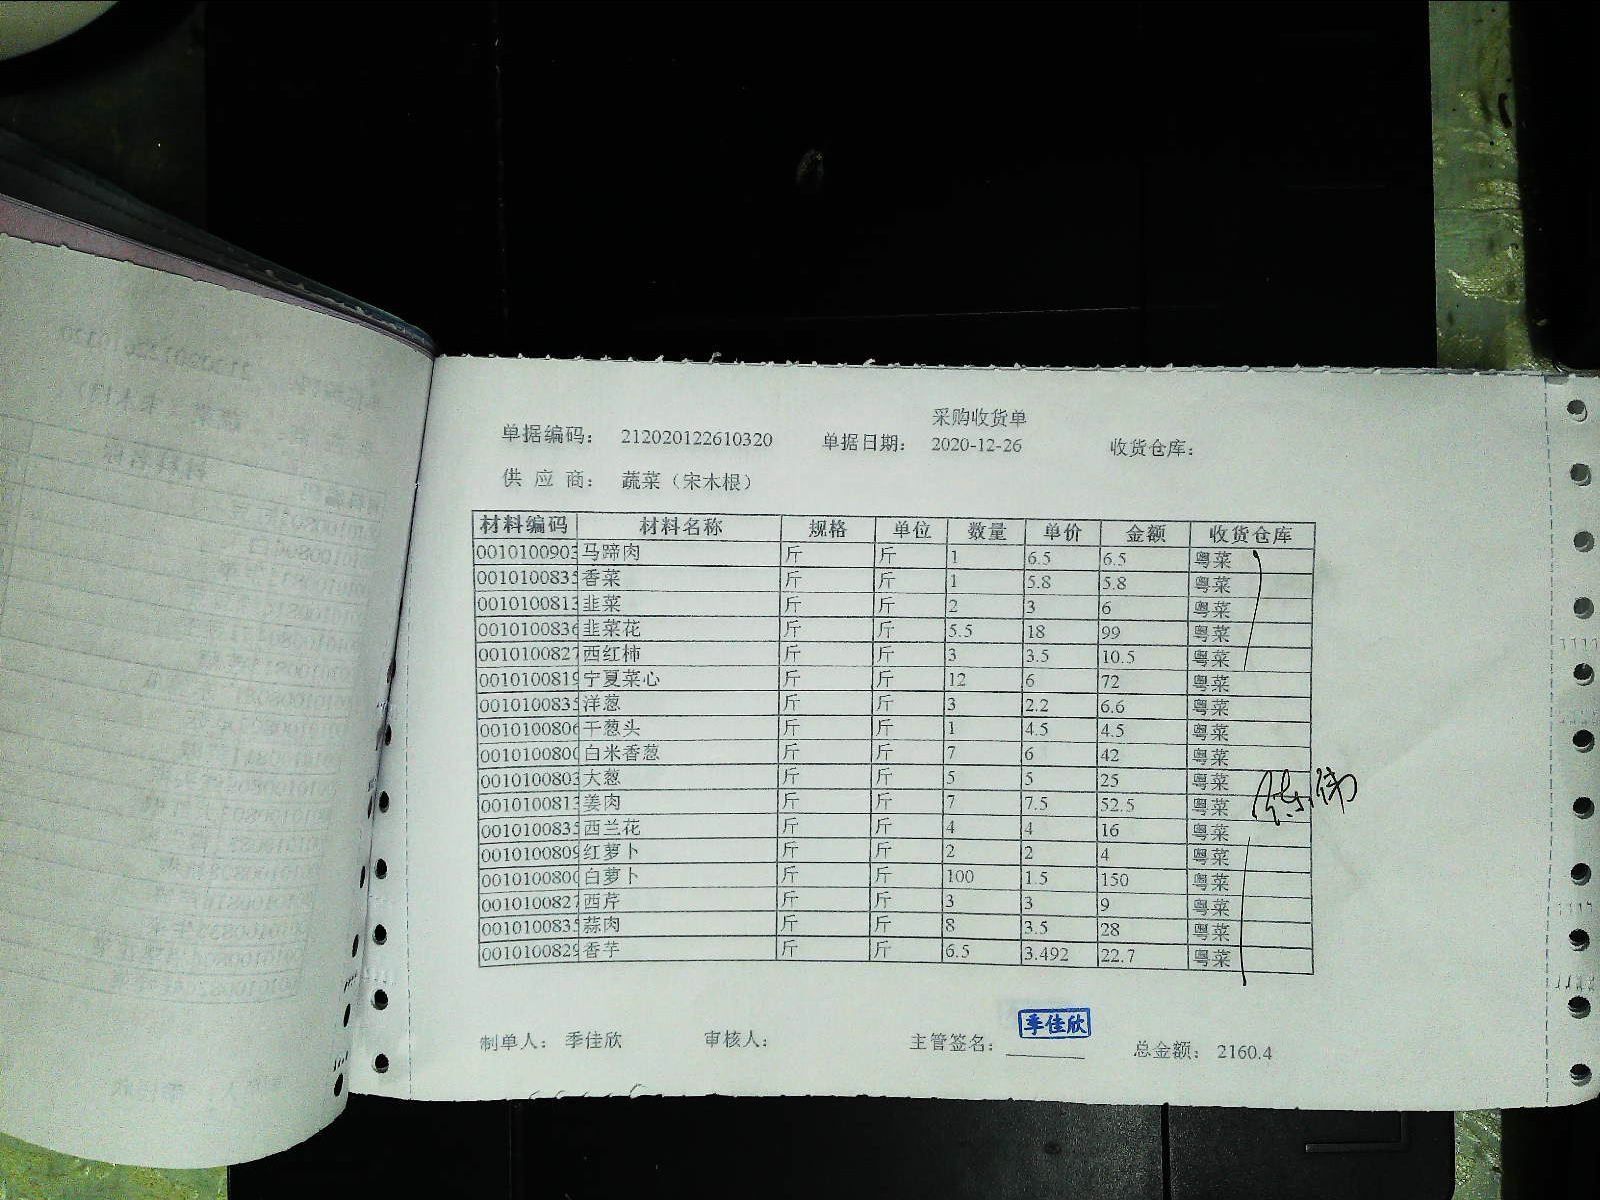 采购收货单
单据编码： 212020122610320 单据日期： 2020-12-26 收货仓库：
供 应 商： 蔬菜（宋木根）
材料编码 材料名称 规格 单位 数量 单价 金额 收货仓库
0010100903 马蹄肉 斤 斤 1 6.5 6.5 粤菜
0010100835 香菜 斤 斤 1 5.8 5.8 粤菜
0010100813 韭菜 斤 斤 2 3 6 粤菜
0010100836 韭菜花 斤 斤 5.5 18 99 粤菜
0010100827 西红柿 斤 斤 3 3.5 10.5 粤菜
0010100819 宁夏菜心 斤 斤 12 6 72 粤菜
0010100835 洋葱 斤 斤 3 2.2 6.6 粤菜
0010100806 干葱头 斤 斤 1 4.5 4.5 粤菜
0010100800 白米香葱 斤 斤 7 6 42 粤菜
0010100803 大葱 斤 斤 5 5 25 粤菜
0010100813 姜肉 斤 斤 7 7.5 52.5 粤菜
0010100835 西兰花 斤 斤 4 4 16 粤菜
0010100809 红萝卜 斤 斤 2 2 4 粤菜
0010100800 白萝卜 斤 斤 100 1.5 150 粤菜
0010100827 西芹 斤 斤 3 3 9 粤菜
0010100835 蒜肉 斤 斤 8 3.5 28 粤菜
0010100829 香芋 斤 斤 6.5 3.492 22.7 粤菜
制单人： 季佳欣 审核人： 主管签名： 季佳欣 总金额： 2160.4